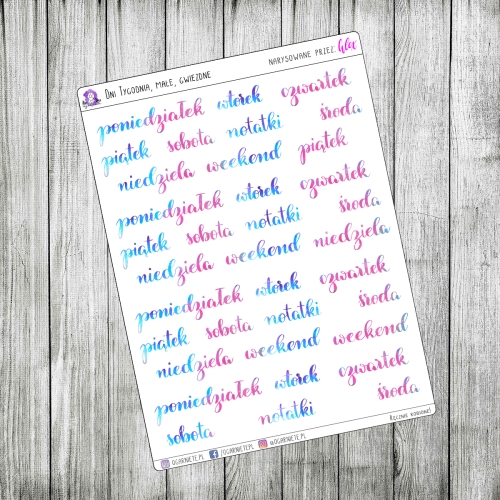 Dni Tygodnia, małe, gwiezdne narysowane przez: Alex
poniedziałek wtorek czwartek
piątek sobota notatki środa
niedziela weekend piątek
poniedziałek wtorek czwartek
piątek sobota notatki środa
niedziela weekend niedziela
poniedziałek wtorek czwartek
piątek sobota notatki środa
niedziela weekend weekend
poniedziałek wtorek czwartek
sobota notatki środa
ogarniete.pl /ogarnietepl @ogarniete.pl